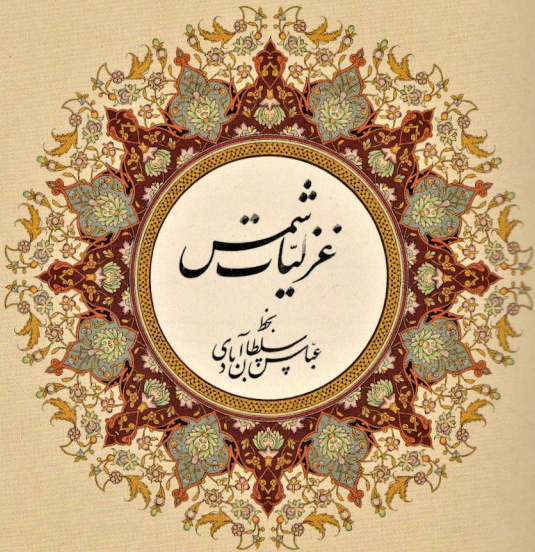 غزلیّات شمس
بخطّ
عبّاس سلطان آبادی